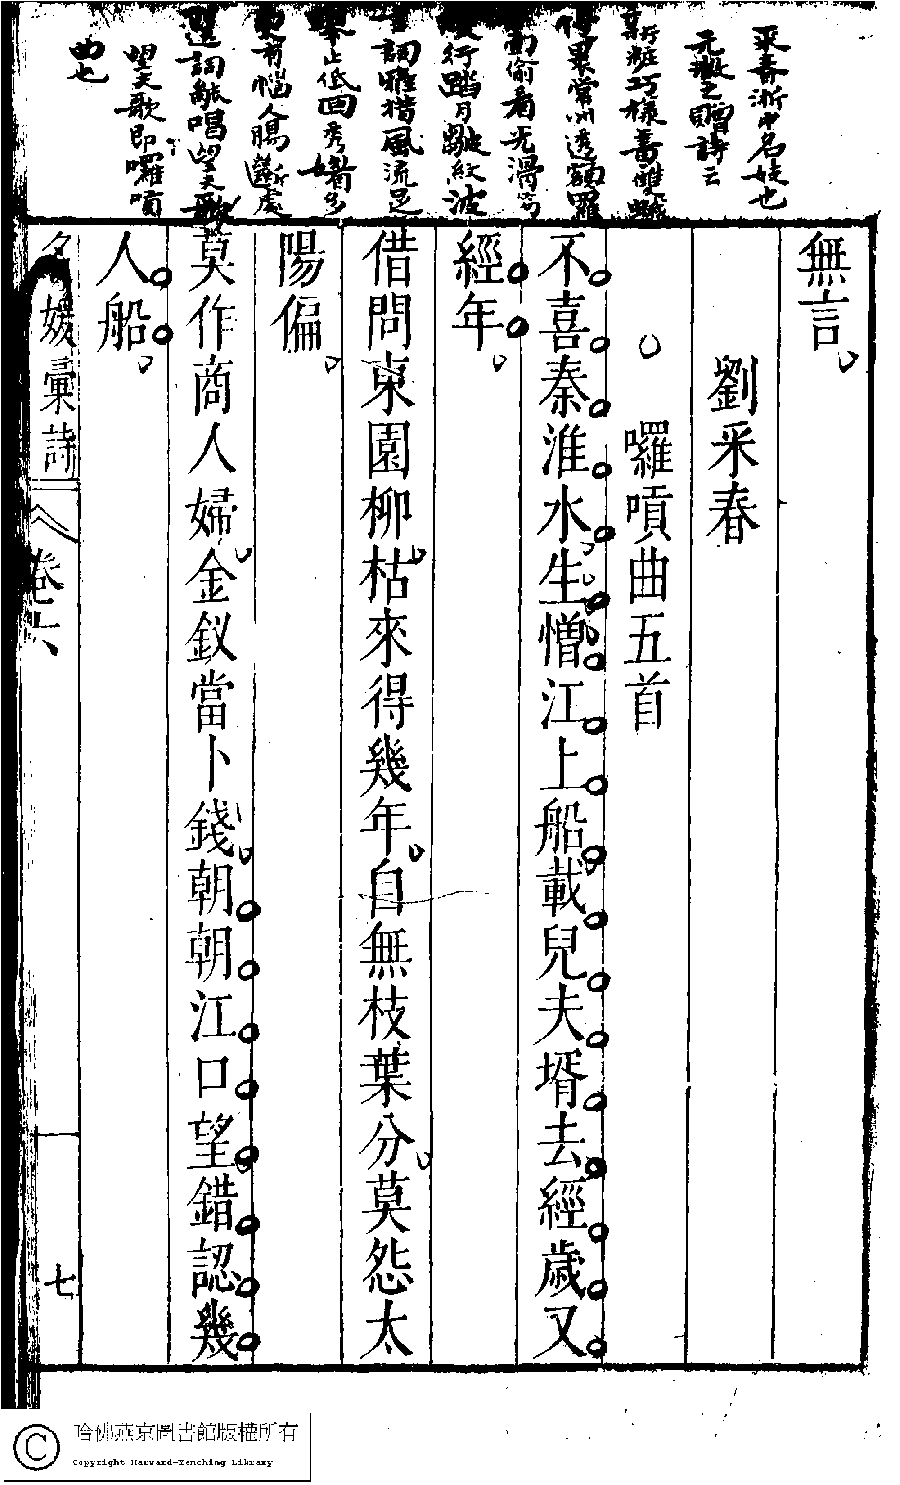 采春浙中名妓也
元微之贈詩云
新粧巧樣畫雙蛾
裹常州透額羅
面偷看光滑笏
行踏月皺紋波
言詞雅措風流足
舉止低回秀媚多
更有惱人腸斷處
選詞能唱望夫歌
望夫歌即囉嗊
曲也
無言
劉采春
囉嗊曲五首
不喜秦淮水生憎江上船載兒夫壻去經歲又
經年
借問東園柳枯來得幾年自無枝葉分莫怨太
陽偏
莫作商人婦金釵當卜錢朝朝江口望錯認幾
人船
名媛彙詩
卷六
七
哈佛燕京圖書館版權所有
Copyright Harvard-Yenching Library